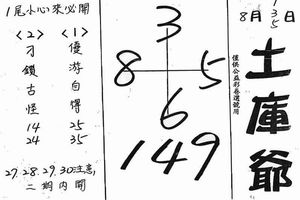 1尾小心來必開
<1>
優游自得
25
35
<2>
刁鎖古怪
14
24
27.28.29.30注意,
二期内開
3
8 5
6
149
僅供公益彩卷選號用
8月1 3 5日
土庫爺